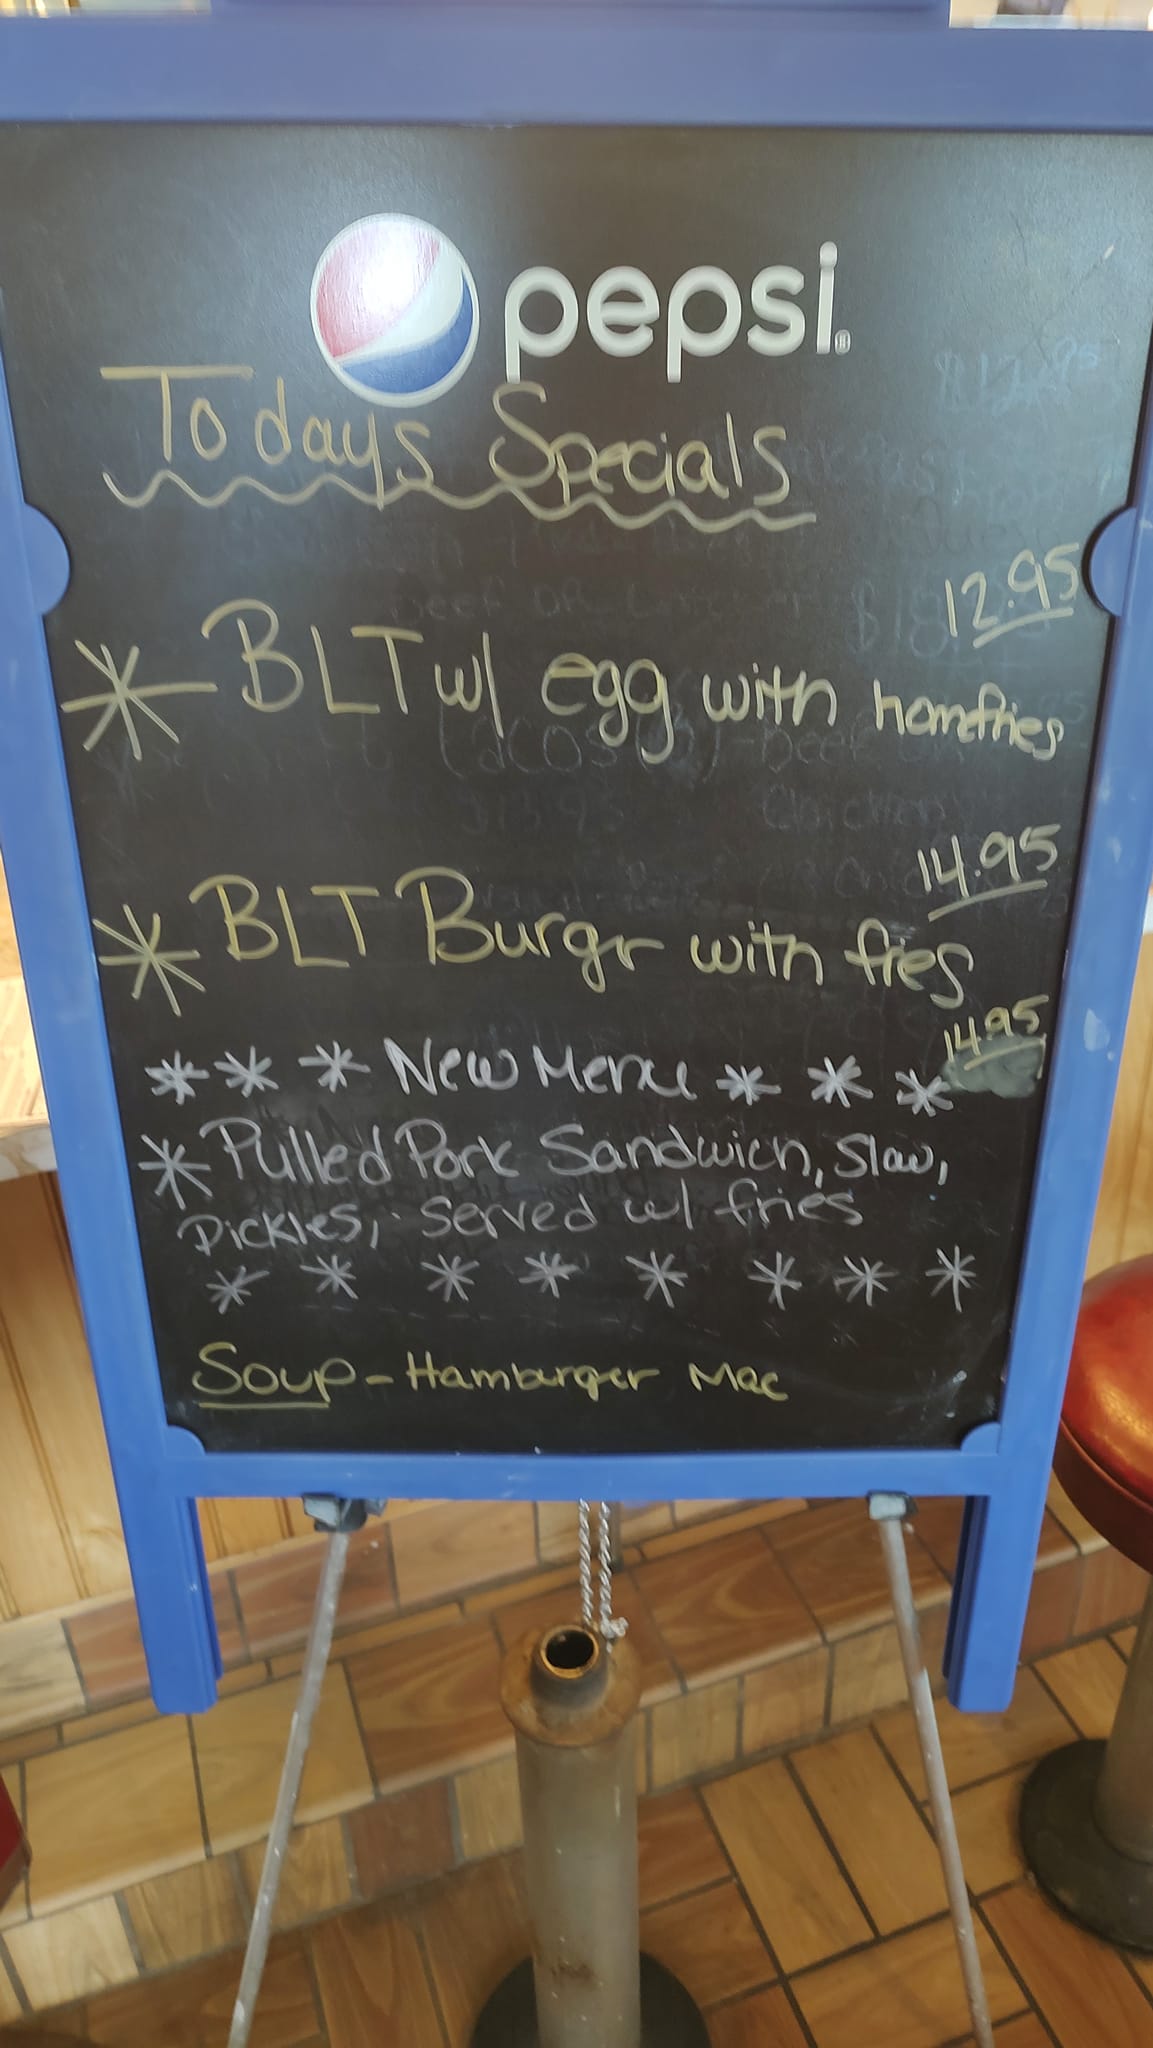 pepsi
Todays Specials
12.95
* BLT w/ egg with homefries
14.95
* BLT Burgr with fries
14.95
* * * New Menu * * *
* Pulled Pork Sandwich, Slaw,
Pickles, served w/ fries
* * * * * * * *
Soup - Hamburger Mac